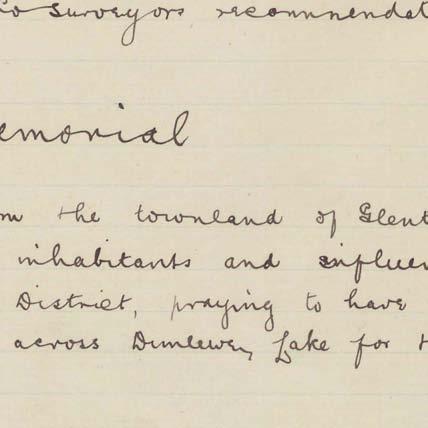 Co Surveyors recommendat
emorial
om the townland of Glent
inhabitants and influen
District, praying to have
across Dunlewey Lake for t